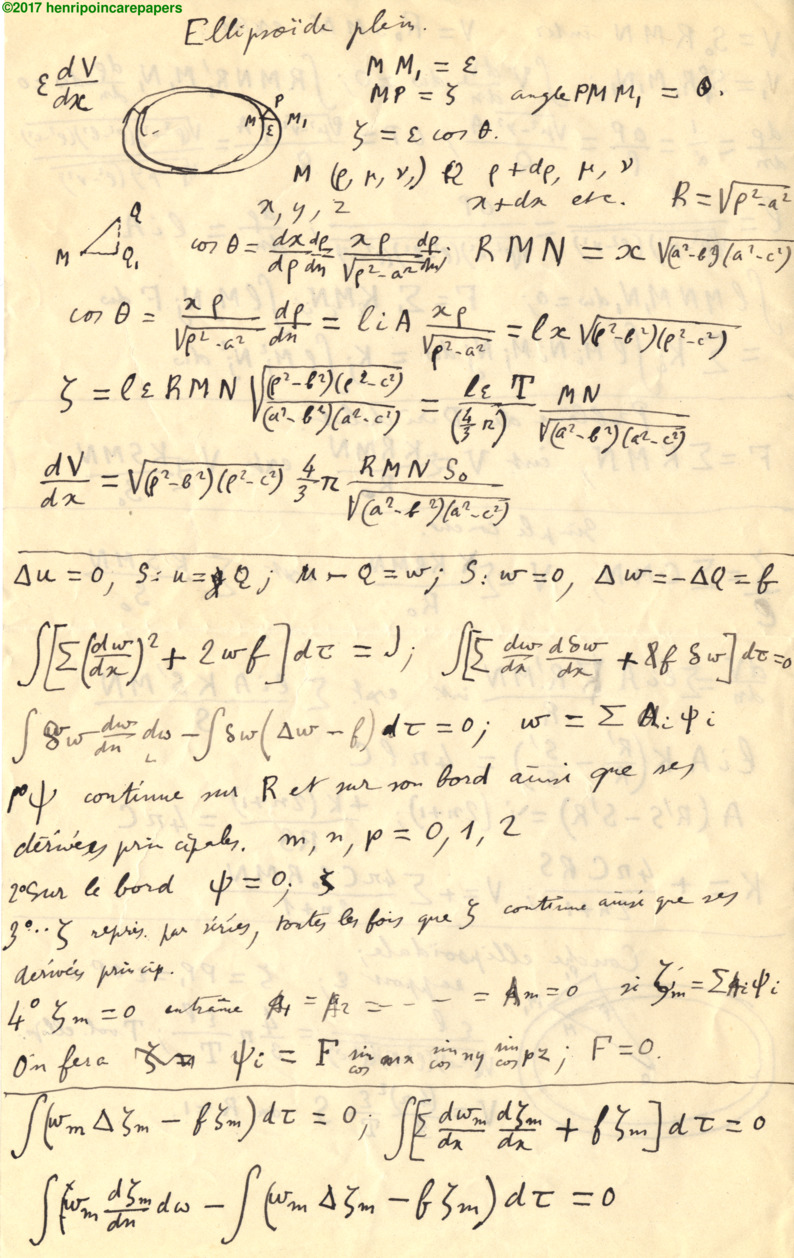 ©2017 henripoincarepapers
Ellipsoïde plein.
ε dV/dx
M M₁ = ε
MP = ζ angle PMM₁ = θ.
M P M₁
ε
ζ = ε cos θ.
M (ρ, μ, ν,) Q ρ + dρ, μ, ν
x, y, z x + dx etc. R = √(ρ²-a²)
M Q Q₁
cos θ = dx/dρ dρ/dn = xρ/√(ρ²-a²) dρ/dn; RMN = x √(a²-b²)(a²-c²)
cos θ = xρ/√(ρ²-a²) dρ/dn = liA xρ/√(ρ²-a²) = lx √(ρ²-b²)(ρ²-c²)
ζ = lε RMN √((ρ²-b²)(ρ²-c²)/(a²-b²)(a²-c²)) = lε T/(4/3 π) MN/√(a²-b²)(a²-c²)
dV/dx = √(ρ²-b²)(ρ²-c²) 4/3 π RMN S₀/√(a²-b²)(a²-c²)
Δu = 0, S: u = Q; u - Q = w; S: w = 0, Δw = -ΔQ = f
∫[Σ(dw/dx)² + 2wf] dτ = J; ∫[Σ dw/dx dδw/dx + f δw] dτ = 0
∫ δw dw/dn dω - ∫ δw (Δw - f) dτ = 0; w = Σ Aᵢ ψᵢ
1° ψ continue sur R et sur son bord ainsi que ses
dérivées principales. m, n, p = 0, 1, 2
2° Sur le bord ψ = 0; ζ
3° .. ζ repris. par séries, toutes les fois que ζ continue ainsi que ses
dérivées princip.
4° ζₘ = 0 entraîne A₁ = A₂ = - - - = Aₘ = 0 si ζₘ = ΣAᵢψᵢ
On fera ψᵢ = F sin/cos mx sin/cos ny sin/cos pz; F = 0.
∫(wₘ Δζₘ - f ζₘ) dτ = 0; ∫[Σ dwₘ/dx dζₘ/dx + f ζₘ] dτ = 0
∫ wₘ dζₘ/dn dω - ∫(wₘ Δζₘ - f ζₘ) dτ = 0